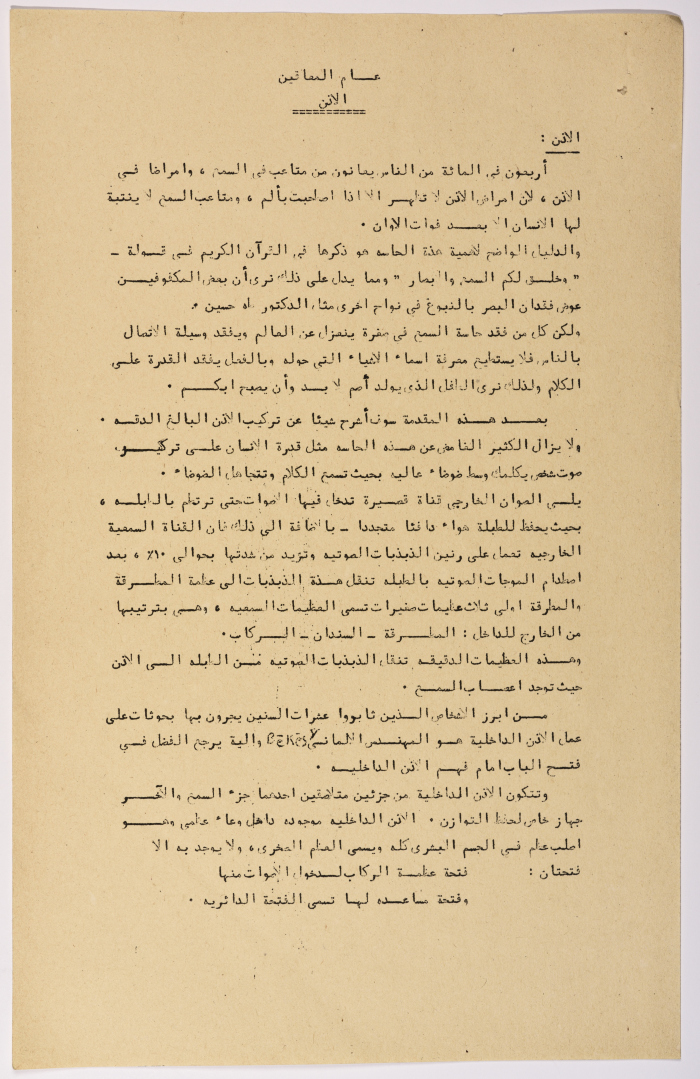 عـام المعاقين
الاذن
===========
الاذن :
أربعون في المائة من الناس يعانون من متاعب في السمع ، وامراضا فـي
الاذن ، لان امراض الاذن لا تظهـر الا اذا اصاحبت بألم ، ومتاعب السمع لا ينتبة
لها الانسان الا بعـد فوات الاوان .
والدليل الواضح لاهمية هذة الحاسه هو ذكرها في القرآن الكريم فـي قـولة ـ
" وخلـق لكم السمع والابصار " ومما يدل على ذلك نرى أن بعض المكفوفيـن
عوض فقدان البصر بالنبوغ في نواح اخرى مثل الدكتور طه حسين .
ولكن كل من فقد حاسة السمع في صغرة ينعزل عن العالم ويفقد وسيلة الاتصال
بالناس فلا يستطيع معرفة اسماء الاشياء التي حوله وبالفعل يفقد القدرة علـى
الكلام ولذلك نرى الطفل الذي يولد أصم لا بـد وأن يصبح ابكـم .
بعـد هـذه المقدمة سوف أشرح شيئا عن تركيب الاذن البالـغ الدقـه .
ولا يزال الكثير الغامض عن هـذه الحاسه مثل قدرة الانسان علـى تركيـز
صوت شخص يكلمك وسط ضوضاء عاليه بحيث تسمع الكلام وتتجاهل الضوضاء .
يلـي الصوان الخارجي قناة قصيرة تدخل فيها الاصوات حتى ترتطم بالطبلـه ،
بحيث يحفظ للطبلة هواء دافئا متجددا ـ بالاضافة الى ذلك فان القناة السمعية
الخارجيه تعمل على رنين الذبذبات الصوتيه وتزيد من شدتها بحوالى ١٠٪ ، بعد
اصطدام الموجات الصوتيه بالطبله تنقل هـذة الذبذبات الى عظمة المطـرقة
والمطرقة اولى ثلاث عظيمات صغيرات تسمى العظيمات السمعيه ، وهـي بترتيبها
من الخارج للداخل : المطـرقة ـ السندان ـ الـركاب .
وهـذه العظيمات الدقيقه تنقل الذبذبات الصوتيه مـن الطبله الـى الاذن
حيث توجد اعصـاب السمـع .
مـن ابرز الاشخاص الـذين ثابروا عشرات السنين يجرون بها بحوثات على
عمل الاذن الداخلية هـو المهندس الالماني BEKESY والية يرجع الفضل فـي
فتـح الباب امام فهـم الاذن الداخليـه .
وتتكون الاذن الداخلية من جزئين متلاصقين احدهما جزء السمع والآخـر
جهاز خاص لحفظ التوازن . الاذن الداخليه موجوده داخل وعاء عظمي وهـو
اصلب عظم فـي الجسم البشري كله ويسمى العظم الصخري، ولا يوجد به الا
فتحتان : فتحة عظمـة الركاب لـدخول الاصوات منها
وفتحة مساعـده لهـا تسمى الفتحة الدائريه .